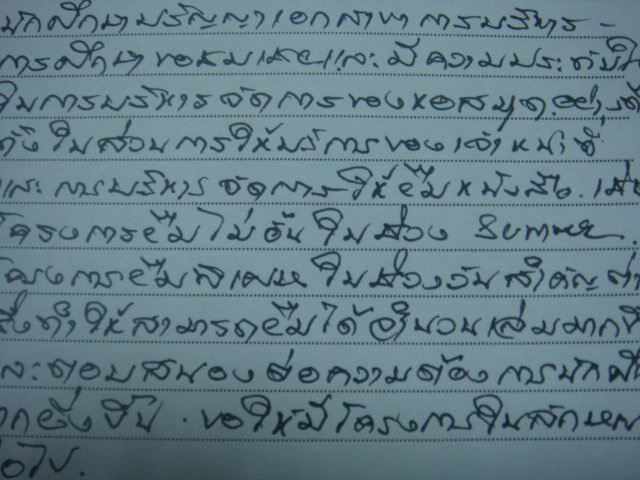 นักศึกษาปริญญาเอกสาขาการบริหาร -
การศึกษา ขอชมเชยและมีความประทับใจ
ในการบริหารจัดการของหอสมุดอย่างยิ่ง
ทั้งในส่วนการให้บริการของเจ้าหน้าที่
และการบริหารจัดการให้ยืมหนังสือ. เช่น
โครงการยืมไม่อั้นในช่วง Summer.
โครงการยืมพิเศษในช่วงวันสำคัญต่าง
ซึ่งทำให้สามารถยืมได้จำนวนเล่มมากขึ้น
และตอบสนองต่อความต้องการนักศึกษา
มากยิ่งขึ้น . ขอให้มีโครงการในลักษณะ
ต่อไป.